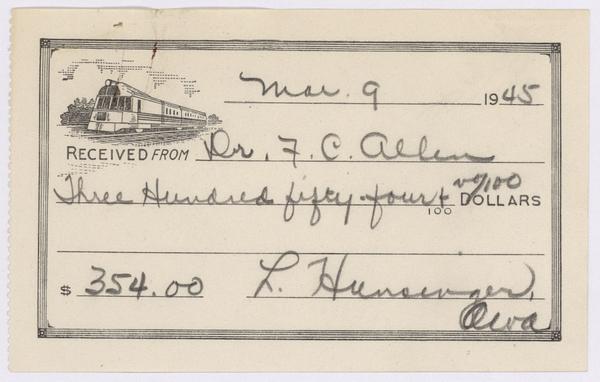 Mar. 9 1945
RECEIVED FROM Dr. F. C. Allen
Three Hundred fifty-four & no/100
100 DOLLARS
$ 354.00 L. Hunsinger,